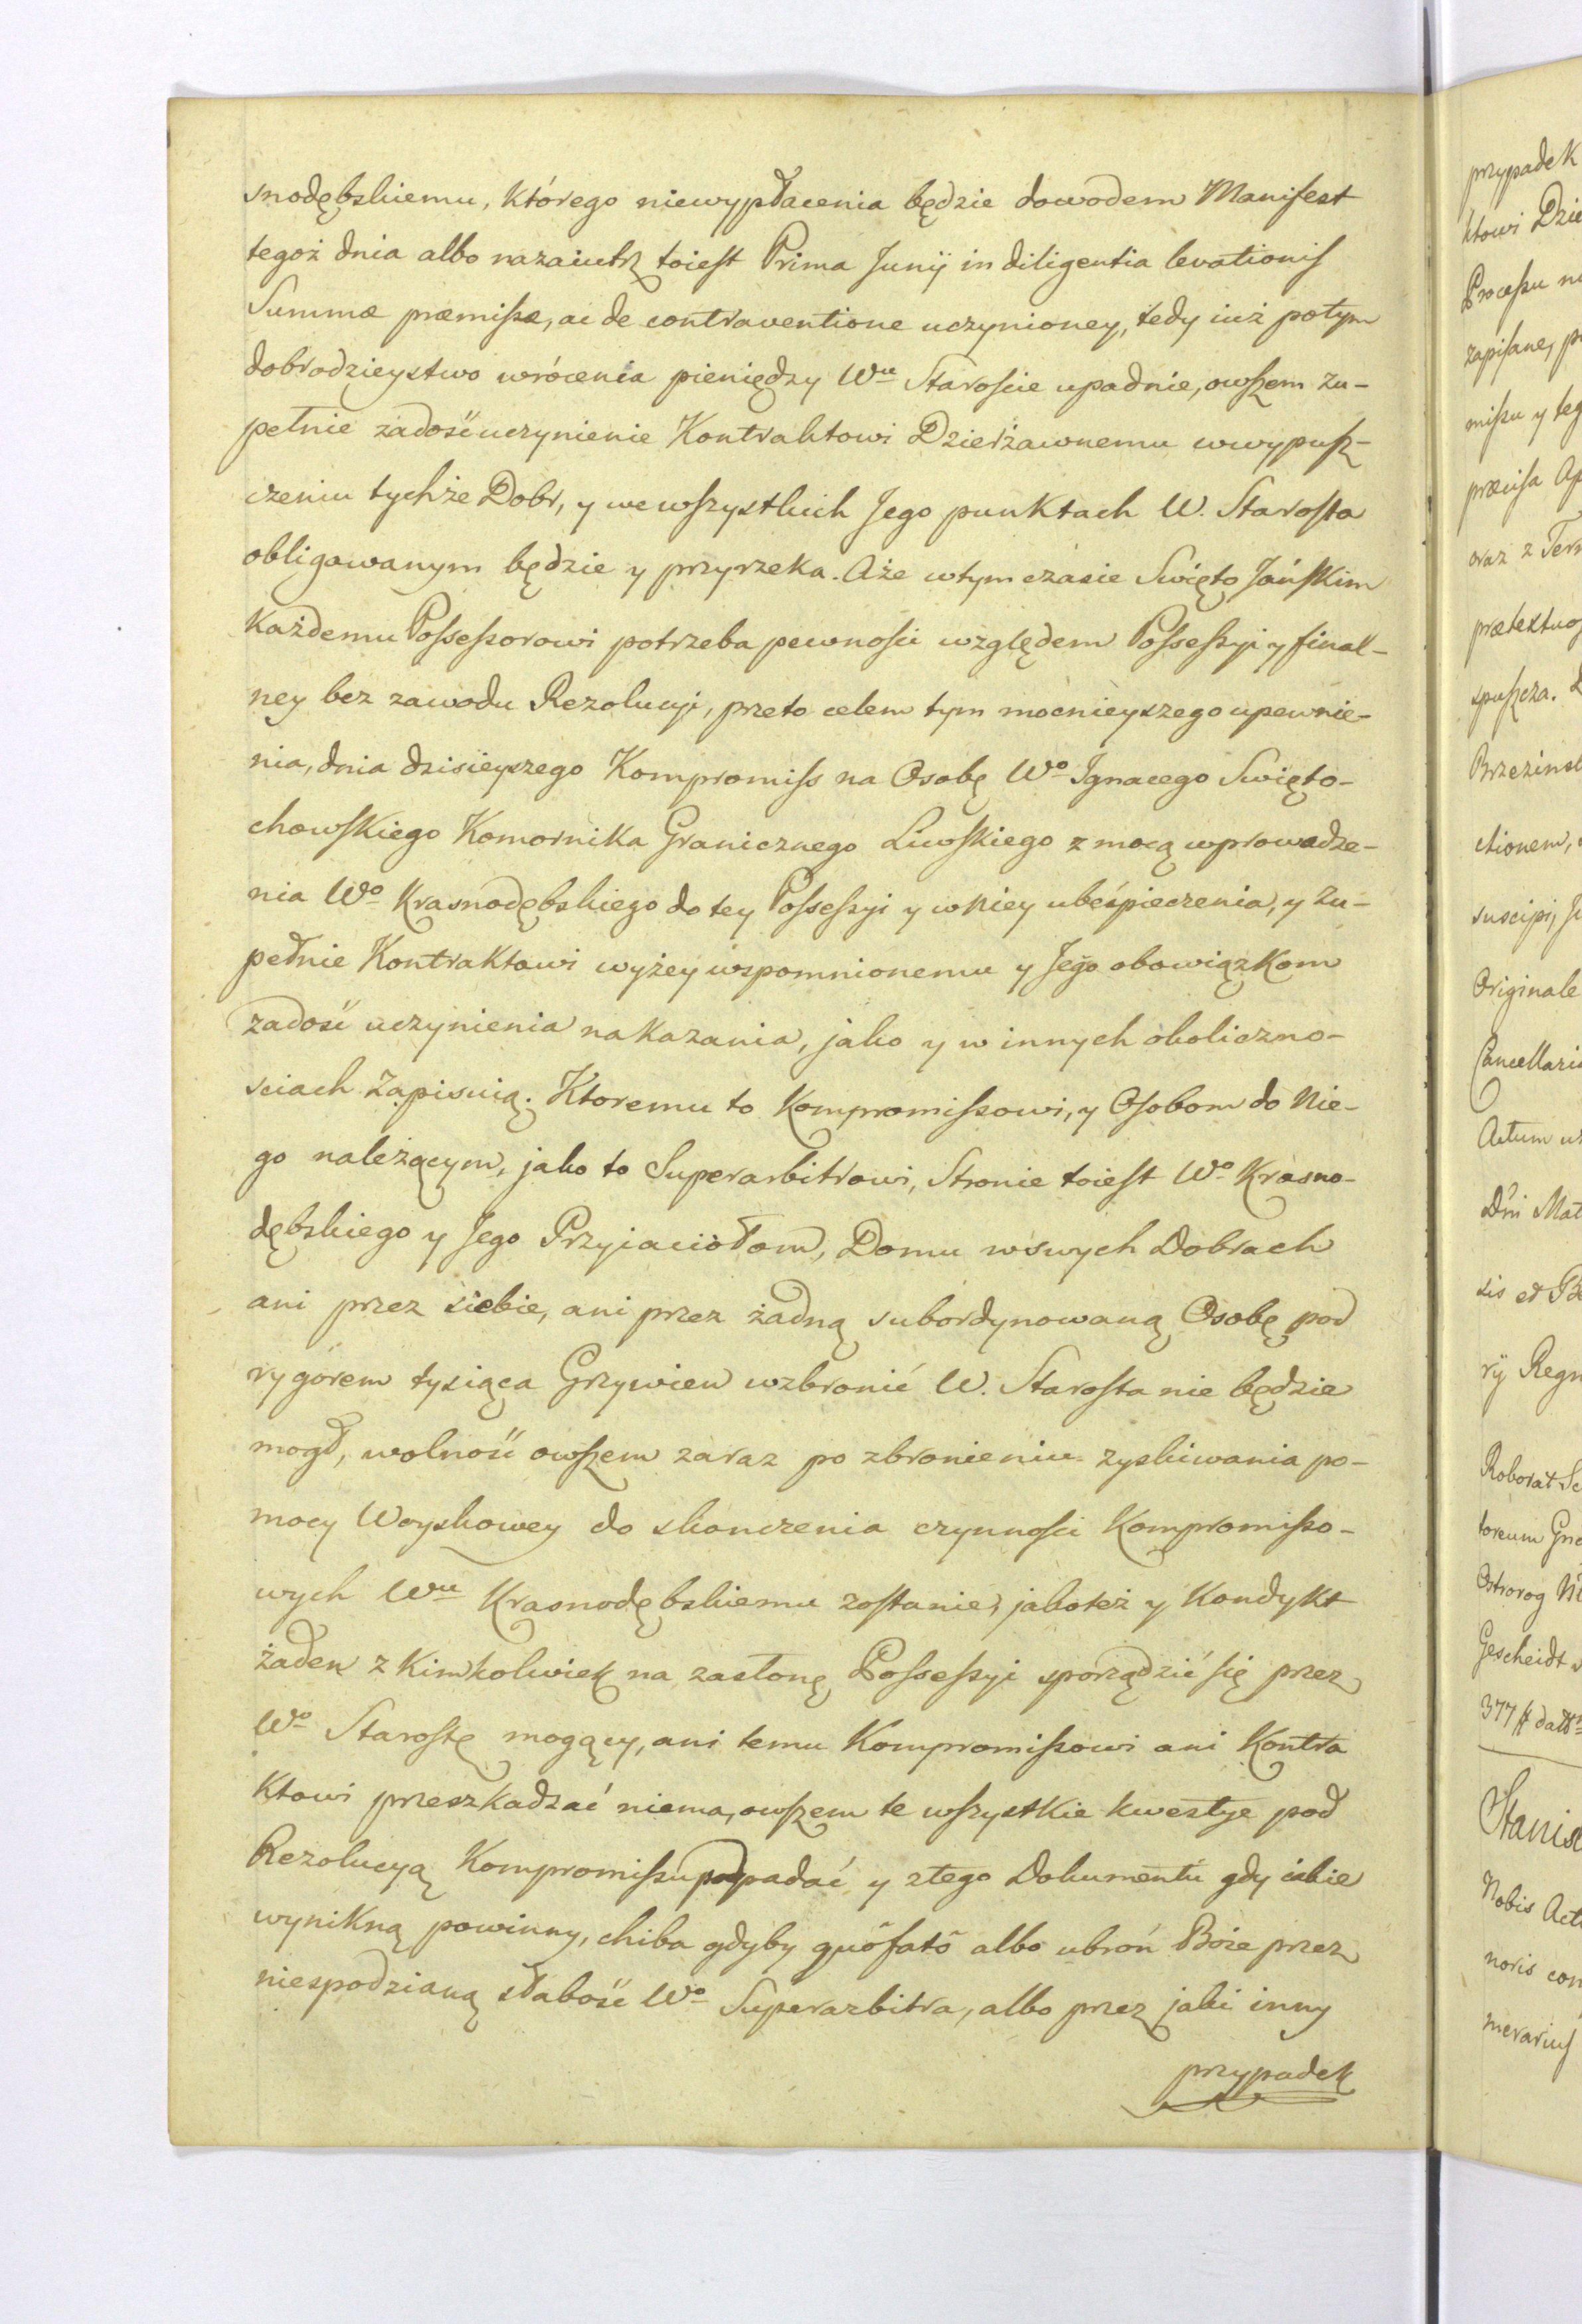 snodębskiemu, którego niewypłacenia będzie dowodem Manifest
tegoż dnia albo nazaiutrz toiest Prima Junij in diligentia levationis
Summæ præmissæ, ac de contraventione uczynioney, tedy iuż potym
dobrodzieystwo wrócenia pieniędzy Wu Staroscie upadnie, owszem zu-
pełnie zadość uczynienie Kontraktowi Dzierżawnemu wwypusz-
czeniu tychże Dobr, y wewszystkich Jego punktach W. Starosta
obligowanym będzie y przyrzeka. Aże wtym czasie Swięto Jańskim
każdemu Possessorowi potrzeba pewnosci względem Possessyi y final-
ney bez zawodu Rezolucyi, preto celem tym mocnieyszego upewnie-
nia, dnia dzisieyszego Kompromiss na Osobę Wo Ignacego Swięto-
chowskiego Komornika Granicznego Liwskiego z mocą wprowadze-
nia Wo Krasnodębskiego do tey Possessyi y wniey ubeśpieczenia, y zu-
pełnie Kontraktowi wyżey wspomnionemu y Jego obowiązkom
zadość uczynienia nakazania, jako y w innych okoliczno-
sciach zapisuią. Ktoremu to Kompromissowi, y Osobom do Nie-
go należącym, jako to Superarbitrowi, Stronie toiest Wo Krasno-
dębskiego y Jego Przyiaciołom, Domu wswych Dobrach
ani przez siebie, ani przez żadną subordynowaną Osobę pod
rygorem tysiąca Grzywien wzbronić W. Starosta nie będzie
mogł, wolność owszem zaraz po zbronieniu zyskiwania po-
mocy Woyskowey do skonczenia czynnosci Kompromisso-
wych Wu Krasnodębskiemu zostanie, jakoteż y Kondykt
żaden z kimkolwiek na zasłonę Possessyi sporządzić się przez
Wo Starostę mogący, ani temu Kompromissowi ani Kontra
ktowi przeszkadzać niema, owszem te wszystkie kwestye pod
Rezolucyą Kompromissu podpadać y ztego Dokumentu gdy
wynikną powinny, chiba gdyby quo fato albo ubroń Boże przez
niespodzianą słabość Wo Superarbitra, albo przez jaki inny
przypadek
przypadek
ktowi Dzie
Processu
zapisane,
missu y teg
præcisa
oraz z Ter
prætextuo
spuszcza.
Brzezins
ctionem,
suscipi,
Originale
Cancellaria
Actum
Dni Mat
sis et
rij Regn
Roborat
toreum
Ostrorog
Gescheidt
377
Stanis
Nobis Act
noris con
merarius